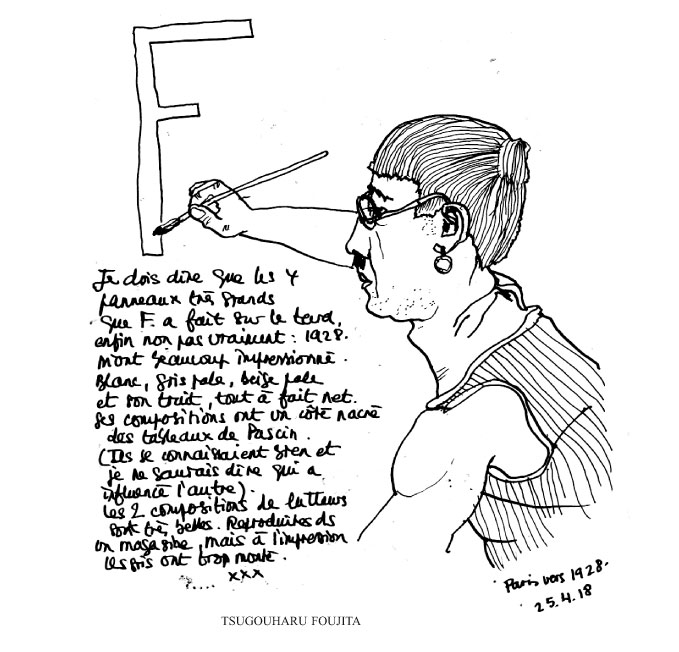 F
Je dois dire que les 4
panneaux très grands
que F. a fait sur le tard,
enfin non pas vraiment : 1928.
m'ont beaucoup impressionné.
Blanc, gris pale, beige pale
et son trait, tout à fait net.
Ses compositions ont un côté nacré
des tableaux de Pascin.
(Ils se connaissaient bien et
je ne saurais dire qui a
influencé l'autre).
Les 2 compositions de lutteurs
sont très belles. Reproduites ds
un magazine, mais à l'impression
les gris ont trop monté.
..... xxx
Paris vers 1928.
25.4.18
TSUGOUHARU FOUJITA